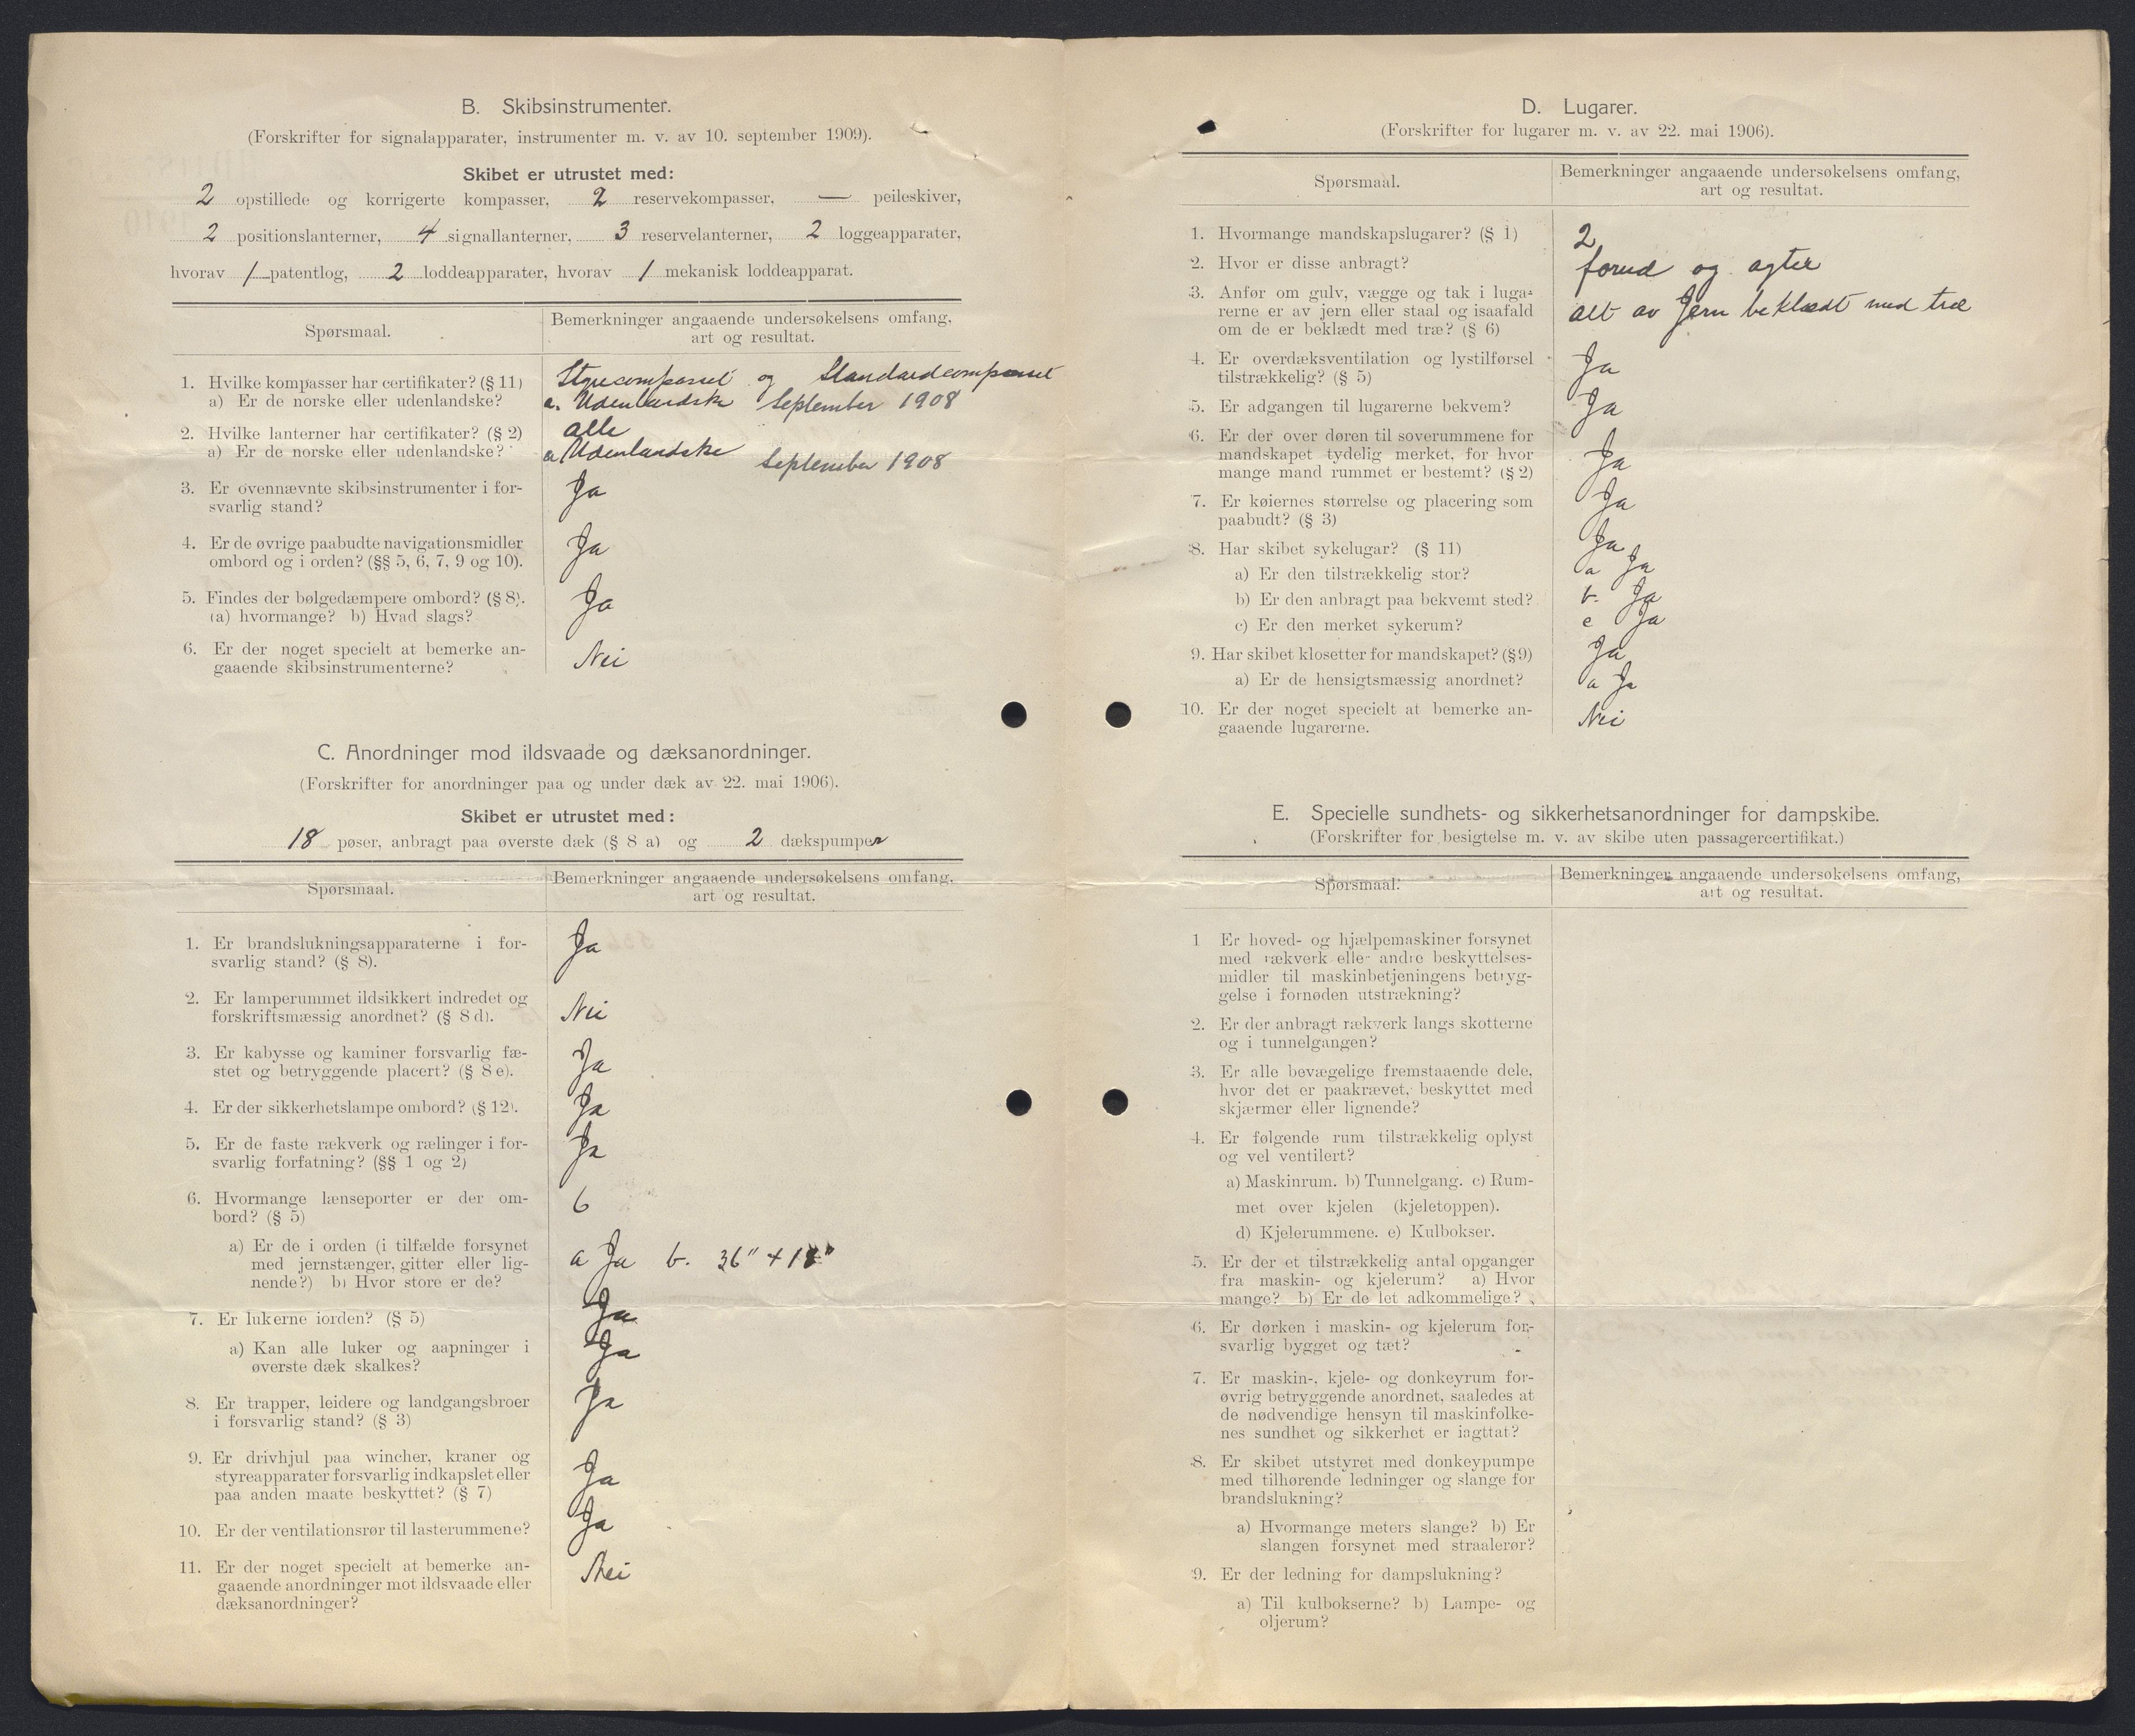 B. Skibsinstrumenter.
(Forskrifter for signalapparater, instrumenter m. v. av 10. september 1909).
Skibet er utrustet med:
2 opstillede og korrigerte kompasser, 2 reservekompasser, — peileskiver,
2 positionslanterner, 4 signallanterner, 3 reservelanterner, 2 loggeapparater,
hvorav 1 patentlog, 2 loddeapparater, hvorav 1 mekanisk loddeapparat.
Spørsmaal.
Bemerkninger angaaende undersøkelsens omfang,
art og resultat.
1. Hvilke kompasser har certifikater? (§ 11) Styrecompasset og Standardcompasset
a) Er de norske eller udenlandske? a. Udenlandske September 1908
2. Hvilke lanterner har certifikater? (§ 2) alle
a) Er de norske eller udenlandske? a Udenlandske September 1908
3. Er ovennævnte skibsinstrumenter i for- Ja
svarlig stand?
4. Er de øvrige paabudte navigationsmidler Ja
ombord og i orden? (§§ 5, 6, 7, 9 og 10).
5. Findes der bølgedæmpere ombord? (§ 8). Ja
(a) hvormange? b) Hvad slags?
6. Er der noget specielt at bemerke an- Nei
gaaende skibsinstrumenterne?
C. Anordninger mod ildsvaade og dæksanordninger.
(Forskrifter for anordninger paa og under dæk av 22. mai 1906).
Skibet er utrustet med:
18 pøser, anbragt paa øverste dæk (§ 8 a) og 2 dækspumper
Spørsmaal.
Bemerkninger angaaende undersøkelsens omfang,
art og resultat.
1. Er brandslukningsapparaterne i for- Ja
svarlig stand? (§ 8).
2. Er lamperummet ildsikkert indredet og Nei
forskriftsmæssig anordnet? (§ 8 d).
3. Er kabysse og kaminer forsvarlig fæ- Ja
stet og betryggende placert? (§ 8 e).
4. Er der sikkerhetslampe ombord? (§ 12). Ja
5. Er de faste rækverk og rælinger i for- Ja
svarlig forfatning? (§§ 1 og 2)
6. Hvormange lænseporter er der om- 6
bord? (§ 5)
a) Er de i orden (i tilfælde forsynet a Ja b. 36" + 18"
med jernstænger, gitter eller lig-
nende?) b) Hvor store er de?
7. Er lukerne iorden? (§ 5) Ja
a) Kan alle luker og aapninger i Ja
øverste dæk skalkes?
8. Er trapper, leidere og landgangsbroer Ja
i forsvarlig stand? (§ 3)
9. Er drivhjul paa wincher, kraner og Ja
styreapparater forsvarlig indkapslet eller
paa anden maate beskyttet? (§ 7)
10. Er der ventilationsrør til lasterummene? Ja
11. Er der noget specielt at bemerke an- Nei
gaaende anordninger mot ildsvaade eller
dæksanordninger?
D. Lugarer.
(Forskrifter for lugarer m. v. av 22. mai 1906).
Spørsmaal.
Bemerkninger angaaende undersøkelsens omfang,
art og resultat.
1. Hvormange mandskapslugarer? (§ 1) 2
2. Hvor er disse anbragt? forud og agter
3. Anfør om gulv, vægge og tak i luga- alt av Jern beklædt med træ
rerne er av jern eller staal og isaafald
om de er beklædt med træ? (§ 6)
4. Er overdæksventilation og lystilførsel Ja
tilstrækkelig? (§ 5)
5. Er adgangen til lugarerne bekvem? Ja
6. Er der over døren til soverummene for Ja
mandskapet tydelig merket, for hvor
mange mand rummet er bestemt? (§ 2)
7. Er køiernes størrelse og placering som Ja
paabudt? (§ 3)
8. Har skibet sykelugar? (§ 11) Ja
a) Er den tilstrækkelig stor? a Ja
b) Er den anbragt paa bekvemt sted? b. Ja
c) Er den merket sykerum? c Ja
9. Har skibet klosetter for mandskapet? (§ 9) Ja
a) Er de hensigtsmæssig anordnet? a Ja
10. Er der noget specielt at bemerke an- Nei
gaaende lugarerne.
E. Specielle sundhets- og sikkerhetsanordninger for dampskibe.
(Forskrifter for besigtelse m. v. av skibe uten passagercertifikat.)
Spørsmaal.
Bemerkninger angaaende undersøkelsens omfang,
art og resultat.
1 Er hoved- og hjælpemaskiner forsynet
med rækverk eller andre beskyttelses-
midler til maskinbetjeningens betryg-
gelse i fornøden utstrækning?
2. Er der anbragt rækverk langs skotterne
og i tunnelgangen?
3. Er alle bevægelige fremstaaende dele,
hvor det er paakrævet, beskyttet med
skjærmer eller lignende?
4. Er følgende rum tilstrækkelig oplyst
og vel ventilert?
a) Maskinrum. b) Tunnelgang. c) Rum-
met over kjelen (kjeletoppen).
d) Kjelerummene. e) Kulbokser.
5. Er der et tilstrækkelig antal opganger
fra maskin- og kjelerum? a) Hvor
mange? b) Er de let adkommelige?
6. Er dørken i maskin- og kjelerum for-
svarlig bygget og tæt?
7. Er maskin-, kjele- og donkeyrum for-
øvrig betryggende anordnet, saaledes at
de nødvendige hensyn til maskinfolke-
nes sundhet og sikkerhet er iagttat?
8. Er skibet utstyret med donkeypumpe
med tilhørende ledninger og slange for
brandslukning?
a) Hvormange meters slange? b) Er
slangen forsynet med straalerør?
9. Er der ledning for dampslukning?
a) Til kulbokserne? b) Lampe- og
oljerum?